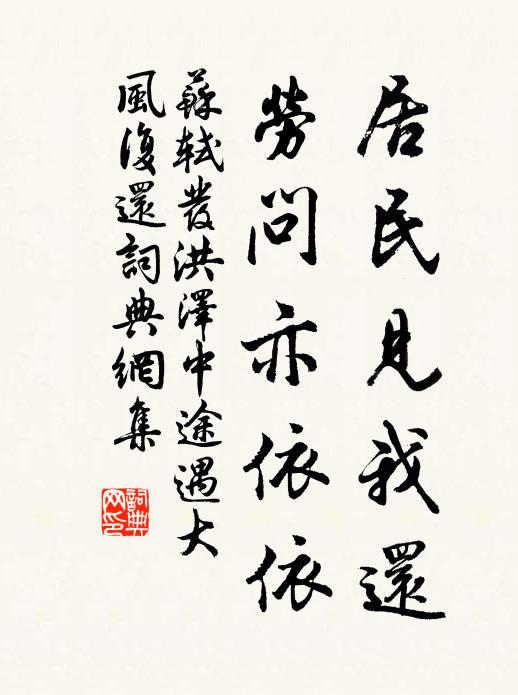 居民見我還
勞問亦依依
蘇軾發洪澤中途遇大
風復還詞典網集
詞典
网印